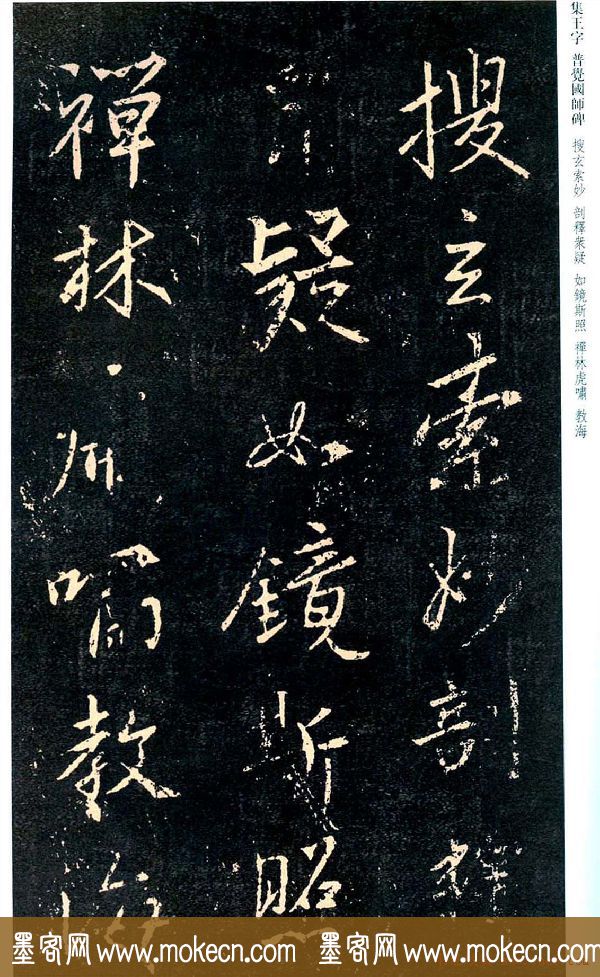 集王字 普覺國師碑 搜玄索妙 剖釋衆疑 如鏡斯照 禪林虎嘯 教海
搜玄索妙剖釋
衆疑如鏡斯照
禪林虎嘯教海
墨客网 www.mokecn.com 墨客网 www.mokecn.com